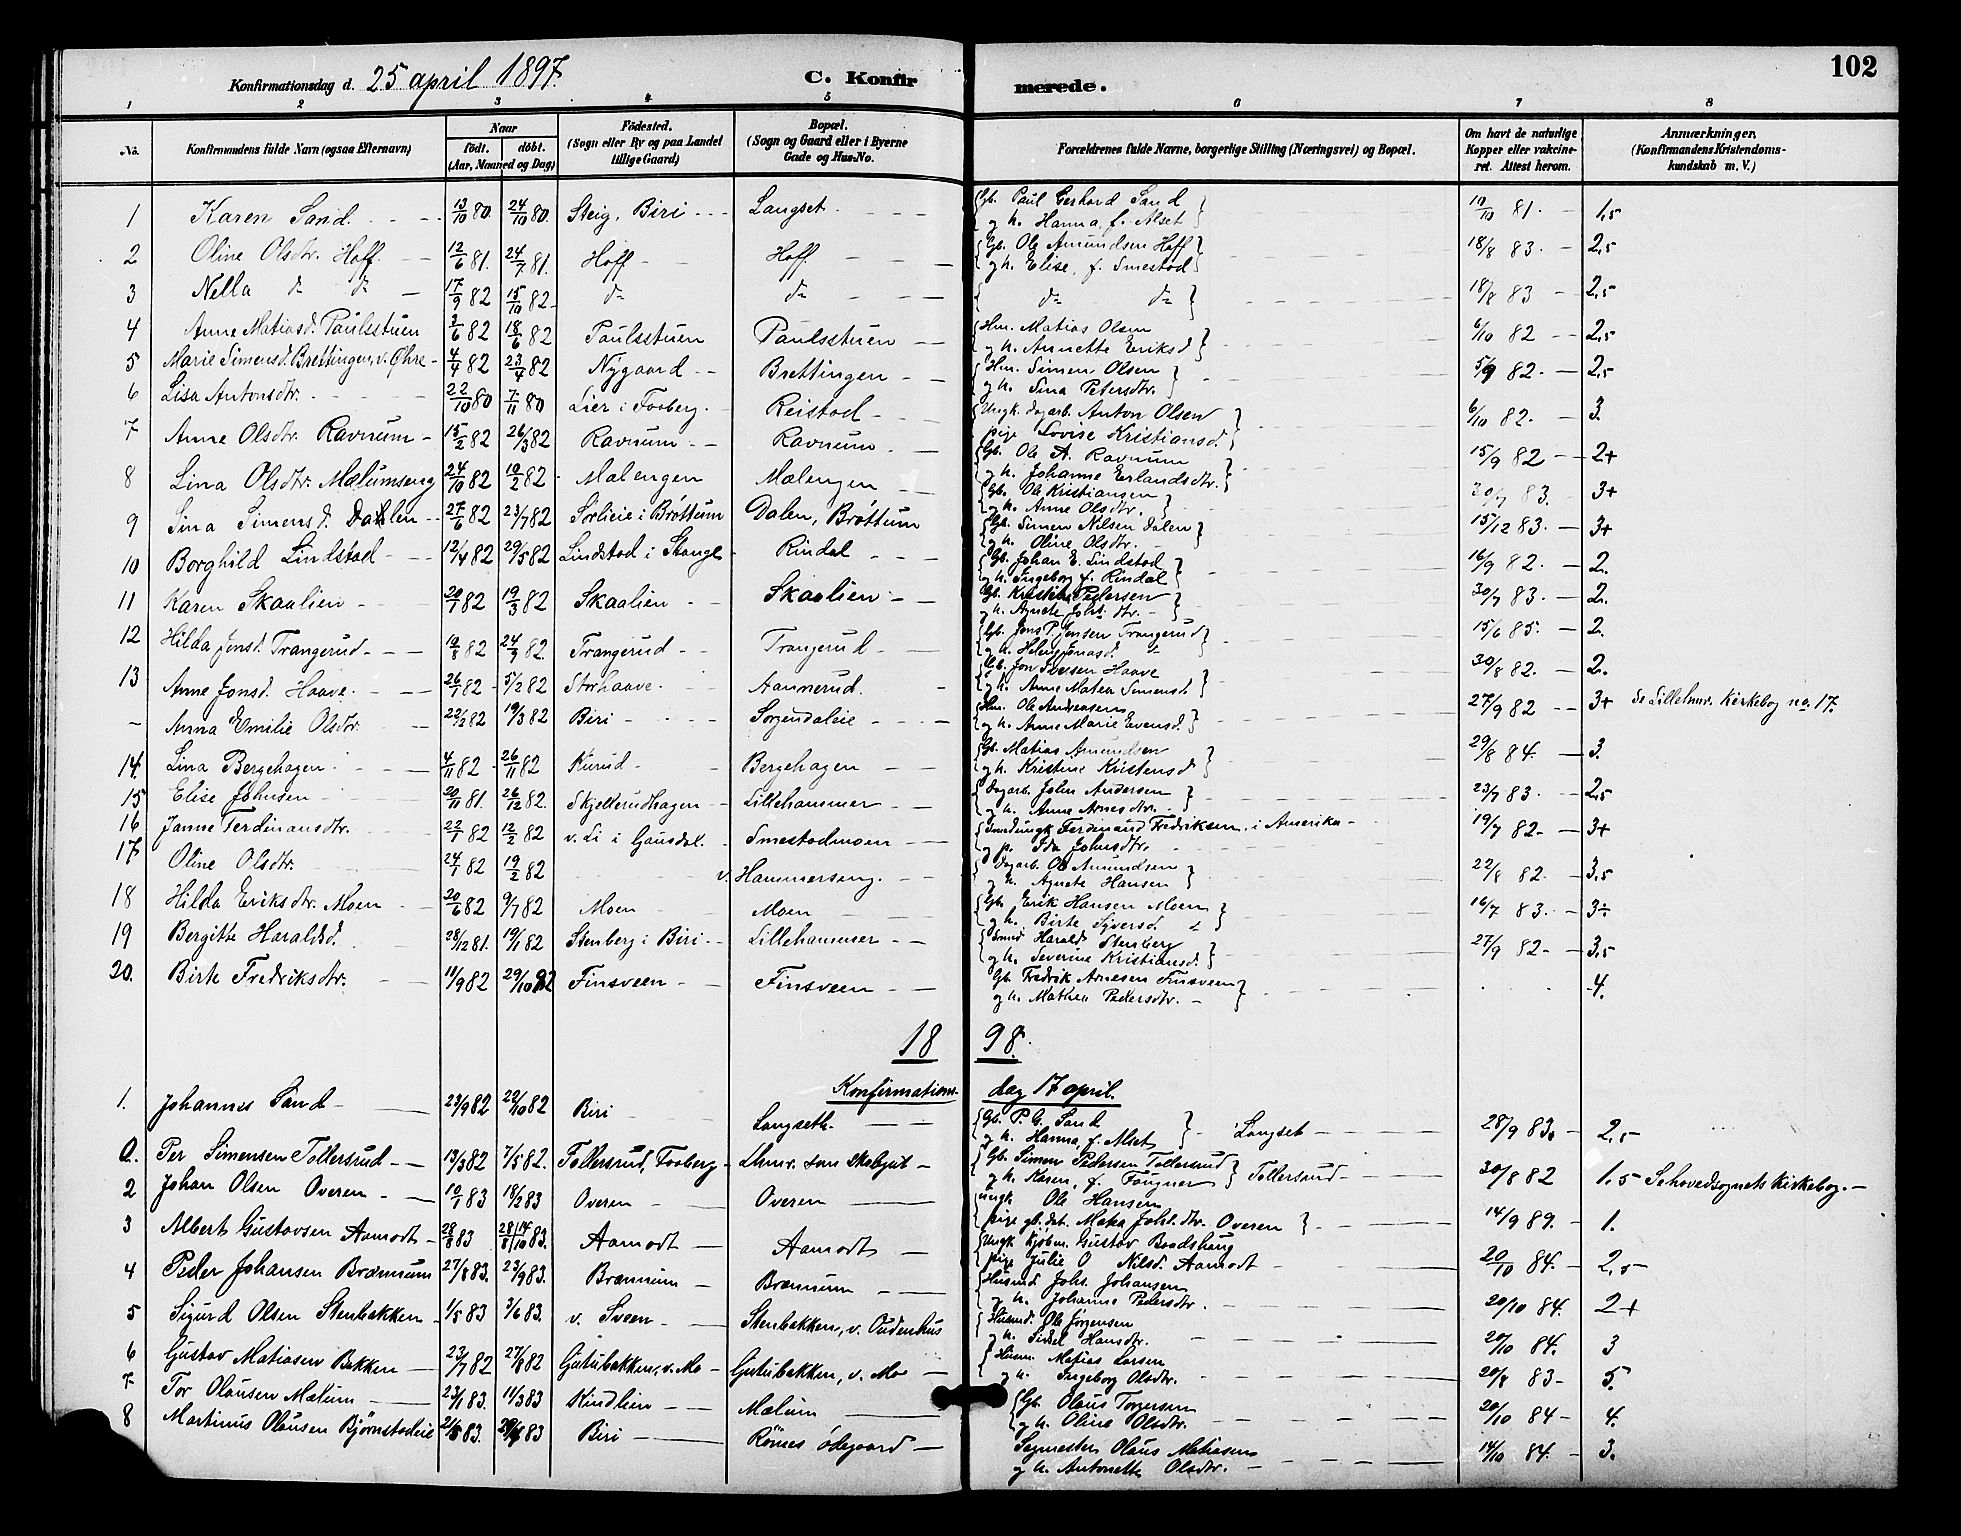 102
Konfirmationsdag d. 25 april 1897. C. Konfirmerede.
1 2 3 4 5 6 7 8
No. Konfirmandens fulde Navn (ogsaa Efternavn) Naar födt. döbt. (Aar, Maaned og Dag) Födested. (Sogn eller By og paa Landet tillige Gaard) Bopæl. (Sogn og Gaard eller i Byerne Gade og Hus-No. Forældrenes fulde Navne, borgerlige Stilling (Næringsvei) og Bopæl. Om havt de naturlige Kopper eller vakcineret. Attest herom. Anmærkninger. (Konfirmandens Kristendomskundskab m. V.)
1 Karen Sand 13/10 80 24/10 80. Steig, Biri Langset Gb. Paul Gerhard Sand og h. Hanna, f. Alset 10/10 81. 1,5
2 Oline Olsdtr. Hoff 12/6 81. 24/7 81. Hoff Hoff Gb. Ole Amundsen Hoff og h. Elise, f. Smestad 18/8 83. 2,5
3 Nella do do 17/9 82 15/10 82 do do do do 18/8 83 2,5
4 Anne Matiasd. Paulsstuen 3/6 82 18/6 82 Paulsstuen Paulsstuen Hm. Matias Olsen og h. Annette Eriksd 6/10 82 2,5
5 Marie Simensd. Brettingen, v. Øhre 4/4 82 23/4 82 Nygaard Brettingen Hm. Simen Olsen og h. Sina Petersdtr. 5/9 82. 2,5
6 Lisa Antonsdtr. 22/10 80 7/11 80 Lier i Faaberg. Reistad Ungk. dagarb. Anton Olsen pige Lovise Kristiansd. 6/10 82. 3.
7 Anne Olsdtr. Ravnum 15/2 82 26/3 82 Ravnum Ravnum Gb. Ole A. Ravnum og h. Johanne Erlandsdtr. 15/9 82 2+
8 Lina Olsdtr. Mælumseng 24/10 82 19/2 82 Malengen Mælengen Gb. Ole Kristiansen og h. Anne Olsdtr. 30/7 83. 3+
9 Sina Simensd. Dahlen 27/6 82 23/7 82 Sorlieie i Brøttum Dalen, Brøttum Gb. Simen Nilsen Dalen og h. Oline Olsdtr. 15/12 83. 3+
10 Borghild Lindstad 12/4 82 29/5 82 Lindstad i Stange Rindal Gb. Johan E. Lindstad og h. Ingeborg f. Rindal 16/9 82. 2.
11 Karen Skaalien 20/1 82 19/3 82 Skaalien Skaalien Gb. Kristian Pedersen og h. Agnete Johs. dtr. 30/7 83. 2.
12 Hilda Jensd. Trangerud 19/8 82 24/9 82. Trangerud Trangerud Gb. Jens P. Jensen Trangerud og h. Helene Jonasd. 15/6 85. 2.
13 Anne Jonsd. Haave. 26/1 82 5/2 82 Storhaave. Aannerud. Gb. Jon Iversen Haave og h. Anne Matea Simensd. 30/8 82. 2.
Anna Emilie Olsdtr. 22/2 82 19/3 82 Biri Sorgendaleie Hm. Ole Andreasen og h. Anne Marie Evensd. 27/9 82 3+ Se Lillehmr. Kirkebog no. 17.
14. Lina Bergehagen 4/11 82 26/11 82 Kurud Bergehagen Gb. Matias Amundsen og h. Kristine Kristensd 29/8 84. 3.
15 Elise Johnsen 20/11 81. 26/12 82. Skjellerudhagen Lillehammer Dagarb. John Andersen og h. Anne Arnesdtr. 23/7 83. 2,5
16 Janne Ferdinansdtr. 22/1 82 12/2 82 v. Li i Gausdal. Smestadmoen Smedungk Ferdinand Fredriksen i Amerika og p. Ida Johnsdtr. 19/7 82. 3+
17 Oline Olsdtr. 24/1 82 19/2 82 v. Hammerseng. Dagarb. Ole Amundsen og h. Agnete Hansen 22/8 82. 3,5
18 Hilda Eriksdtr. Moen 20/6 82 9/7 82 Moen Moen Gb. Erik Hansen Moen og h. Birte Syversd. 16/7 83. 3÷
19 Bergitte Haraldsd. 28/12 81. 19/1 82 Stenberg i Biri Lillehammer Smed Harald Stenberg og h. Severine Kristiansd. 27/9 82 3,5
20. Birte Fredriksdtr. 11/9 82 29/10 82 Finsveen Finsveen Gb. Fredrik Arnesen Finsveen og h. Mathea Pedersdtr. 4.
1898.
Konfirmationsdag 17 april.
1. Johannes Sand 23/9 82 22/10 82 Biri Langseth. Gb. P. G. Sand og h. Hanna, f. Alset Langset 28/9 83. 2,5
0. Per Simensen Tollersrud 13/3 82 7/5 82. Tollersrud, Faaberg Lhmr. som Skolegut Gb. Simen Pedersen Tollersrud og h. Karen, f. Fougner Tollersrud 30/8 82 1,5 Se hovedsognets Kirkebog.
2 Johan Olsen Overen 10/1 83 18/2 83 Overen Overen Ungk Ole Hansen pige gb. dat. Matea Johs. dtr. Overen 14/9 89. 1.
3 Albert Gustavsen Aamodt 28/8 83 28/8 14/10 83. Aamodt Aamodt Ungk Kjøbm. Gustav Baadshaug pige Julie O Nilsd. Aamodt 20/10 84. 2,5
4 Peder Johansen Brænnum 27/8 83. 23/9 83. Brænnum Brænnum Husmd Johs. Johansen og h. Johanne Pedersdtr. 20/10 84. 2+
5 Sigurd Olsen Stenbakken 1/5 83 3/6 83. v. Sveen Stenbakken, v. Oudenhus Husmd. Ole Jørgensen og h. Sidsel Hansdtr. 20/10 84. 3
6 Gustav Matiasen Bakken 23/7 82 27/8 82 Gutubakken, v. Mo Gutubakken, v. Mo Husm. Matias Larsen og h. Ingeborg Olsdtr. 20/8 83 5.
7 Tor Olausen Mælum 23/1 83. 11/3 83 Kindlien Mælum Gb. Olaus Torgersen og h. Oline Olsdtr. 20/10 84 4.
8 Martinus Olausen Bjørnstadeie 21/5 83. 83 Biri Rönes ödegaard Sagmester Olaus Matiasen og h. Antonette Olsdtr. 14/10 84. 3.